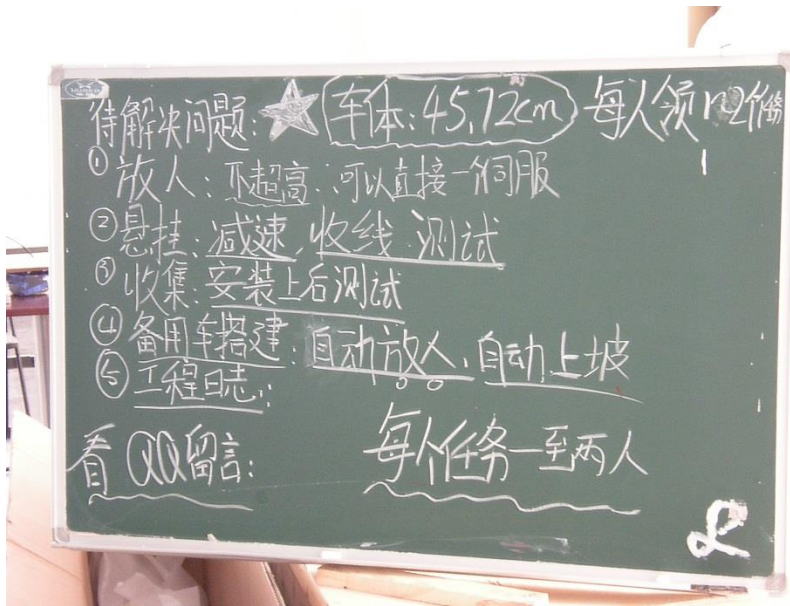 待解决问题: ☆ 车体:45.72cm 每人领1~2任务
① 放人: 不超高 可以直接一个伺服
② 悬挂: 减速、收线 测试
③ 收集: 安装上后测试
④ 备用车搭建: 自动放人、自动上坡
⑤ 工程日志:
看QQ留言: 每个任务一至两人